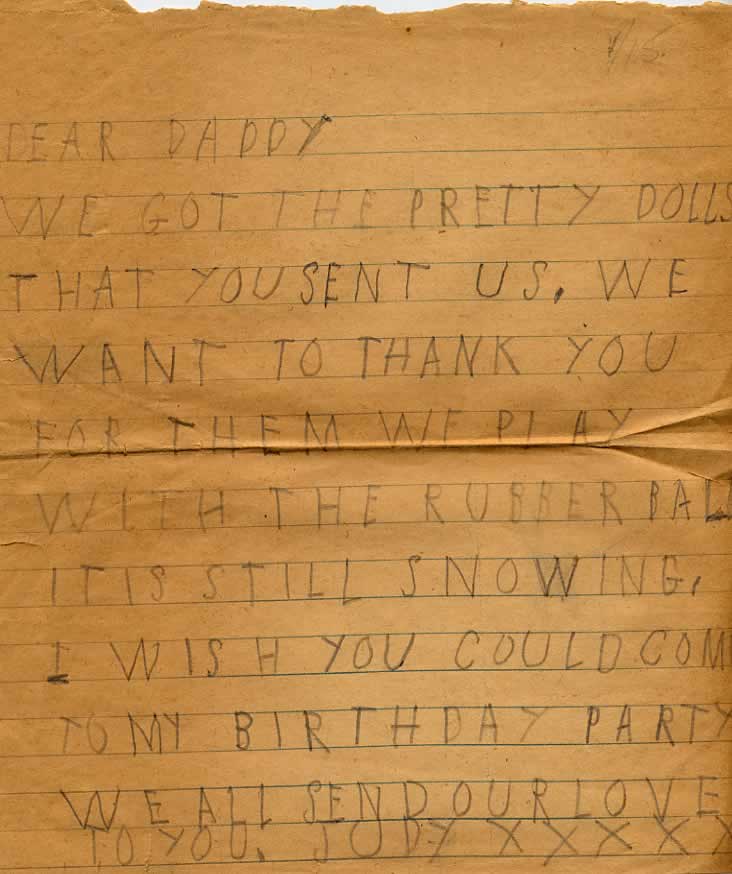 1/15
DEAR DADDY
WE GOT THE PRETTY DOLLS
THAT YOU SENT US. WE
WANT TO THANK YOU
FOR THEM WE PLAY
WITH THE RUBBER BALL
IT IS STILL SNOWING.
I WISH YOU COULD COM
TO MY BIRTHDAY PARTY
WE ALL SEND OUR LOVE
TO YOU. JUDY X X X X X